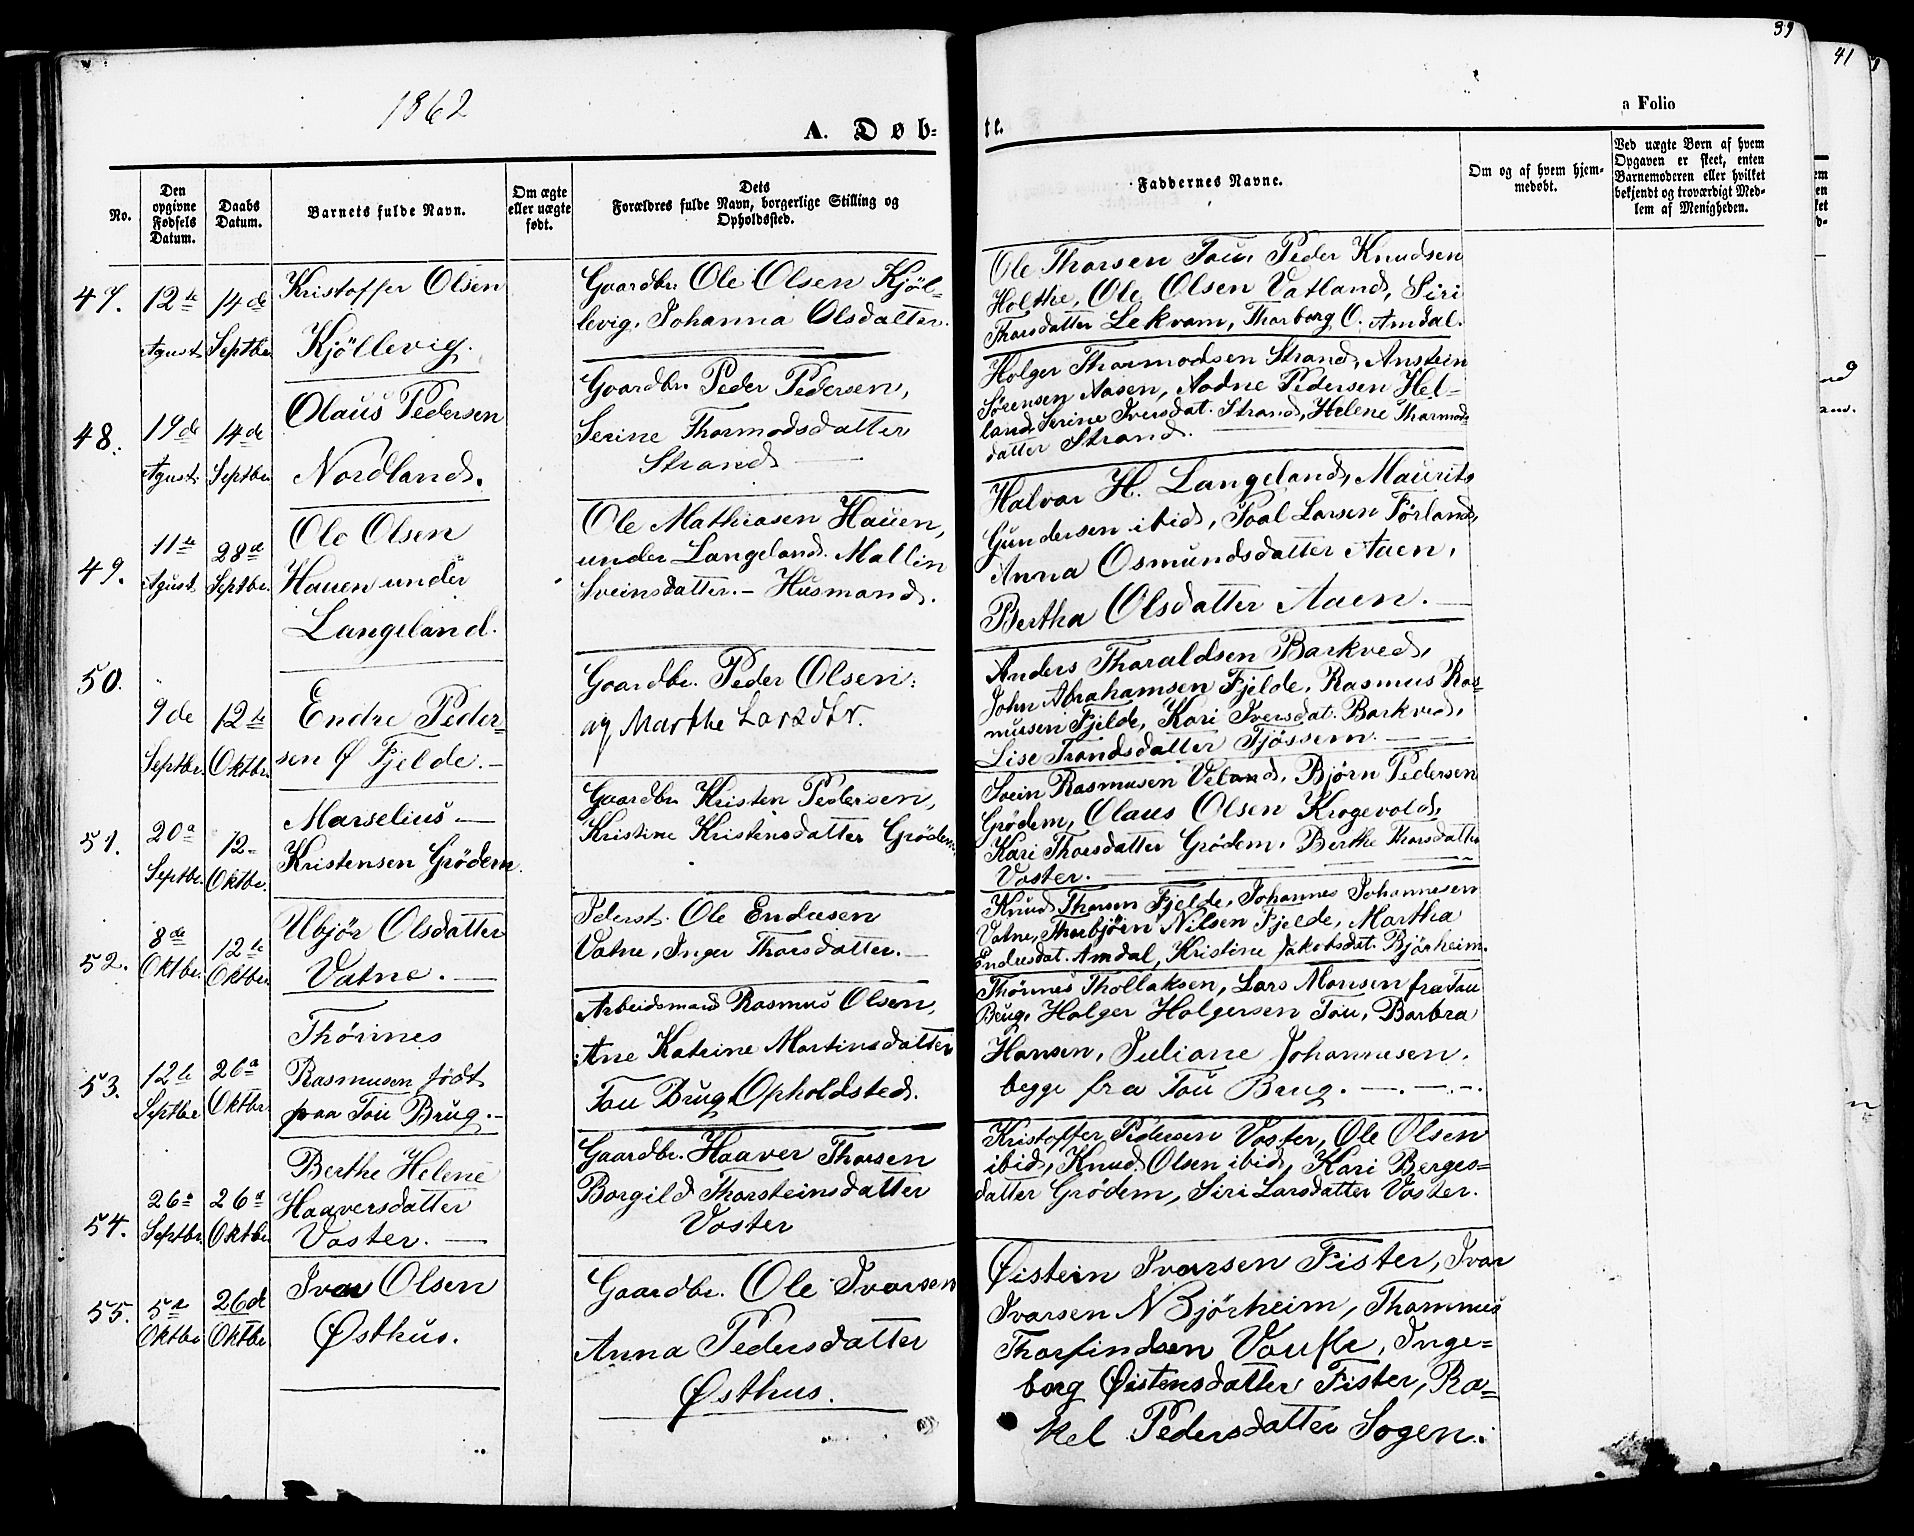 39
41
1862
a Folio
A. Døb-
te.
No.
Den opgivne Fødsels Datum.
Daabs Datum.
Barnets fulde Navn.
Om ægte eller uægte født.
Dets Forældres fulde Navn, borgerlige Stilling og Opholdssted.
Faddernes Navne.
Om og af hvem hjemmedøbt.
Ved uægte Børn af hvem Opgaven er skeet, enten Barnemoderen eller hvilket bekjendt og troværdigt Medlem af Menigheden.
47.
12te
Agust
14de
Septbr.
Kristoffer Olsen
Kjöllevig.
Gaardbr. Ole Olsen Kjöl-
levig, Johanna Olsdatter.
Ole Thorsen Tou, Peder Knudsen
Holthe, Ole Olsen Vatland, Siri
Thorsdatter Lekvam, Thorborg O. Amdal.
48.
19de
Agust
14de
Septbr.
Olaus Pedersen
Nordland.
Gaardbr. Peder Pedersen,
Serine Thormodsdatter
Strand
Holger Thormodsen Strand, Anstein
Sörensen Aasen, Aadne Pedersen Hel-
land, Serine Iversdat. Strand, Helene Thormods
datter Strand.
49.
11te
Agust
28de
Septbr.
Ole Olsen
Hauen under
Langeland.
Ole Mathiasen Hauen,
under Langeland. Mallin
Sveinsdatter. - Husmand.
Halvor H. Langeland, Maurits
Gundersen ibid, Poal Larsen Förland,
Anna Osmundsdatter Aaen,
Bertha Olsdatter Aaen.
50.
9de
Septbr.
12te
Oktbr.
Endre Peder-
sen Ø Fjelde.
Gaardbr. Peder Olsen.
og Marthe Larsdtr.
Anders Tharaldsen Barkved,
John Abrahamsen Fjelde, Rasmus Ras-
musen Fjelde, Kari Iversdat. Barkved,
Lise Trondsdatter Tjössem.
51.
20a
Septbr.
12
Oktbr.
Marselius
Kristensen Grödem.
Gaardbr. Kristen Pedersen,
Kristine Kristensdatter Grödem.
Svein Rasmusen Veland, Bjørn Pedersen
Grödem, Olaus Olsen Krogevold,
Kari Thorsdatter Grödem, Berthe Thorsdatter
Voster.
52.
8de
Oktbr.
12te
Oktbr.
Ubjör Olsdatter
Vatne.
Ole Endresen
Vatne, Inger Thorsdatter.
Knud Thorsen Fjelde, Johannes Johannesen
Vatne, Thorbjörn Nilsen Fjelde, Martha
Endresdat. Amdal, Kristine Jakobsdat. Bjørheim.
53.
12te
Septbr
26a
Oktbr.
Thönnes
Rasmusen født
paa Tou Brug.
Arbeidsmand Rasmus Olsen,
Ane Katrine Martinsdatter
Tou Brug Opholdsted.
Thönnes Thollaksen, Lars Monsen fra Tou
Brug, Holger Holgersen Tou, Barbra
Hansen, Juliane Johannesen,
begge fra Tou Brug.
54.
26a
Septbr.
26d
Oktbr
Berthe Helene
Haaversdatter
Voster.
Gaardbr. Haaver Thorsen
Borgild Thorsteinsdatter
Voster
Kristoffer Pedersen Voster, Ole Olsen
ibid, Knud Olsen ibid, Kari Berges-
datter Grödem, Siri Larsdatter Voster.
55.
5te
Oktbr
26de
Oktbr
Ivar Olsen
Østhus.
Gaardbr. Ole Ivarsen
Anna Pedersdatter
Østhus.
Øistein Ivarsen Fister, Ivar
Ivarsen N Bjørheim, Thommus
Thorfindsen, Inge-
borg Øistensdatter Fister, Ra-
kel Pedersdatter Sogen.